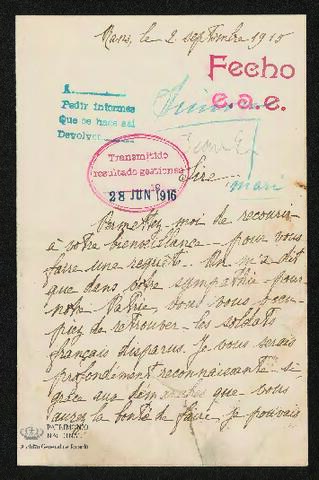 Mans, le 2 septembre 1915
Fecho
e.a.e.
A
Pedir informes
Que se hace así
Devolver
Transmitido
resultado gestiones
28 JUN 1916
Sire
mari
Permettez-moi de recourir
à votre bienveillance pour vous
faire une requête. On m'a dit
que dans votre sympathie pour
notre Patrie, vous vous occu-
piez de retrouver les soldats
français disparus. Je vous serais
profondément reconnaissante si
grâce aux démarches que vous
aurez la bonté de faire, je pouvais
PATRIMONIO
NACIONAL